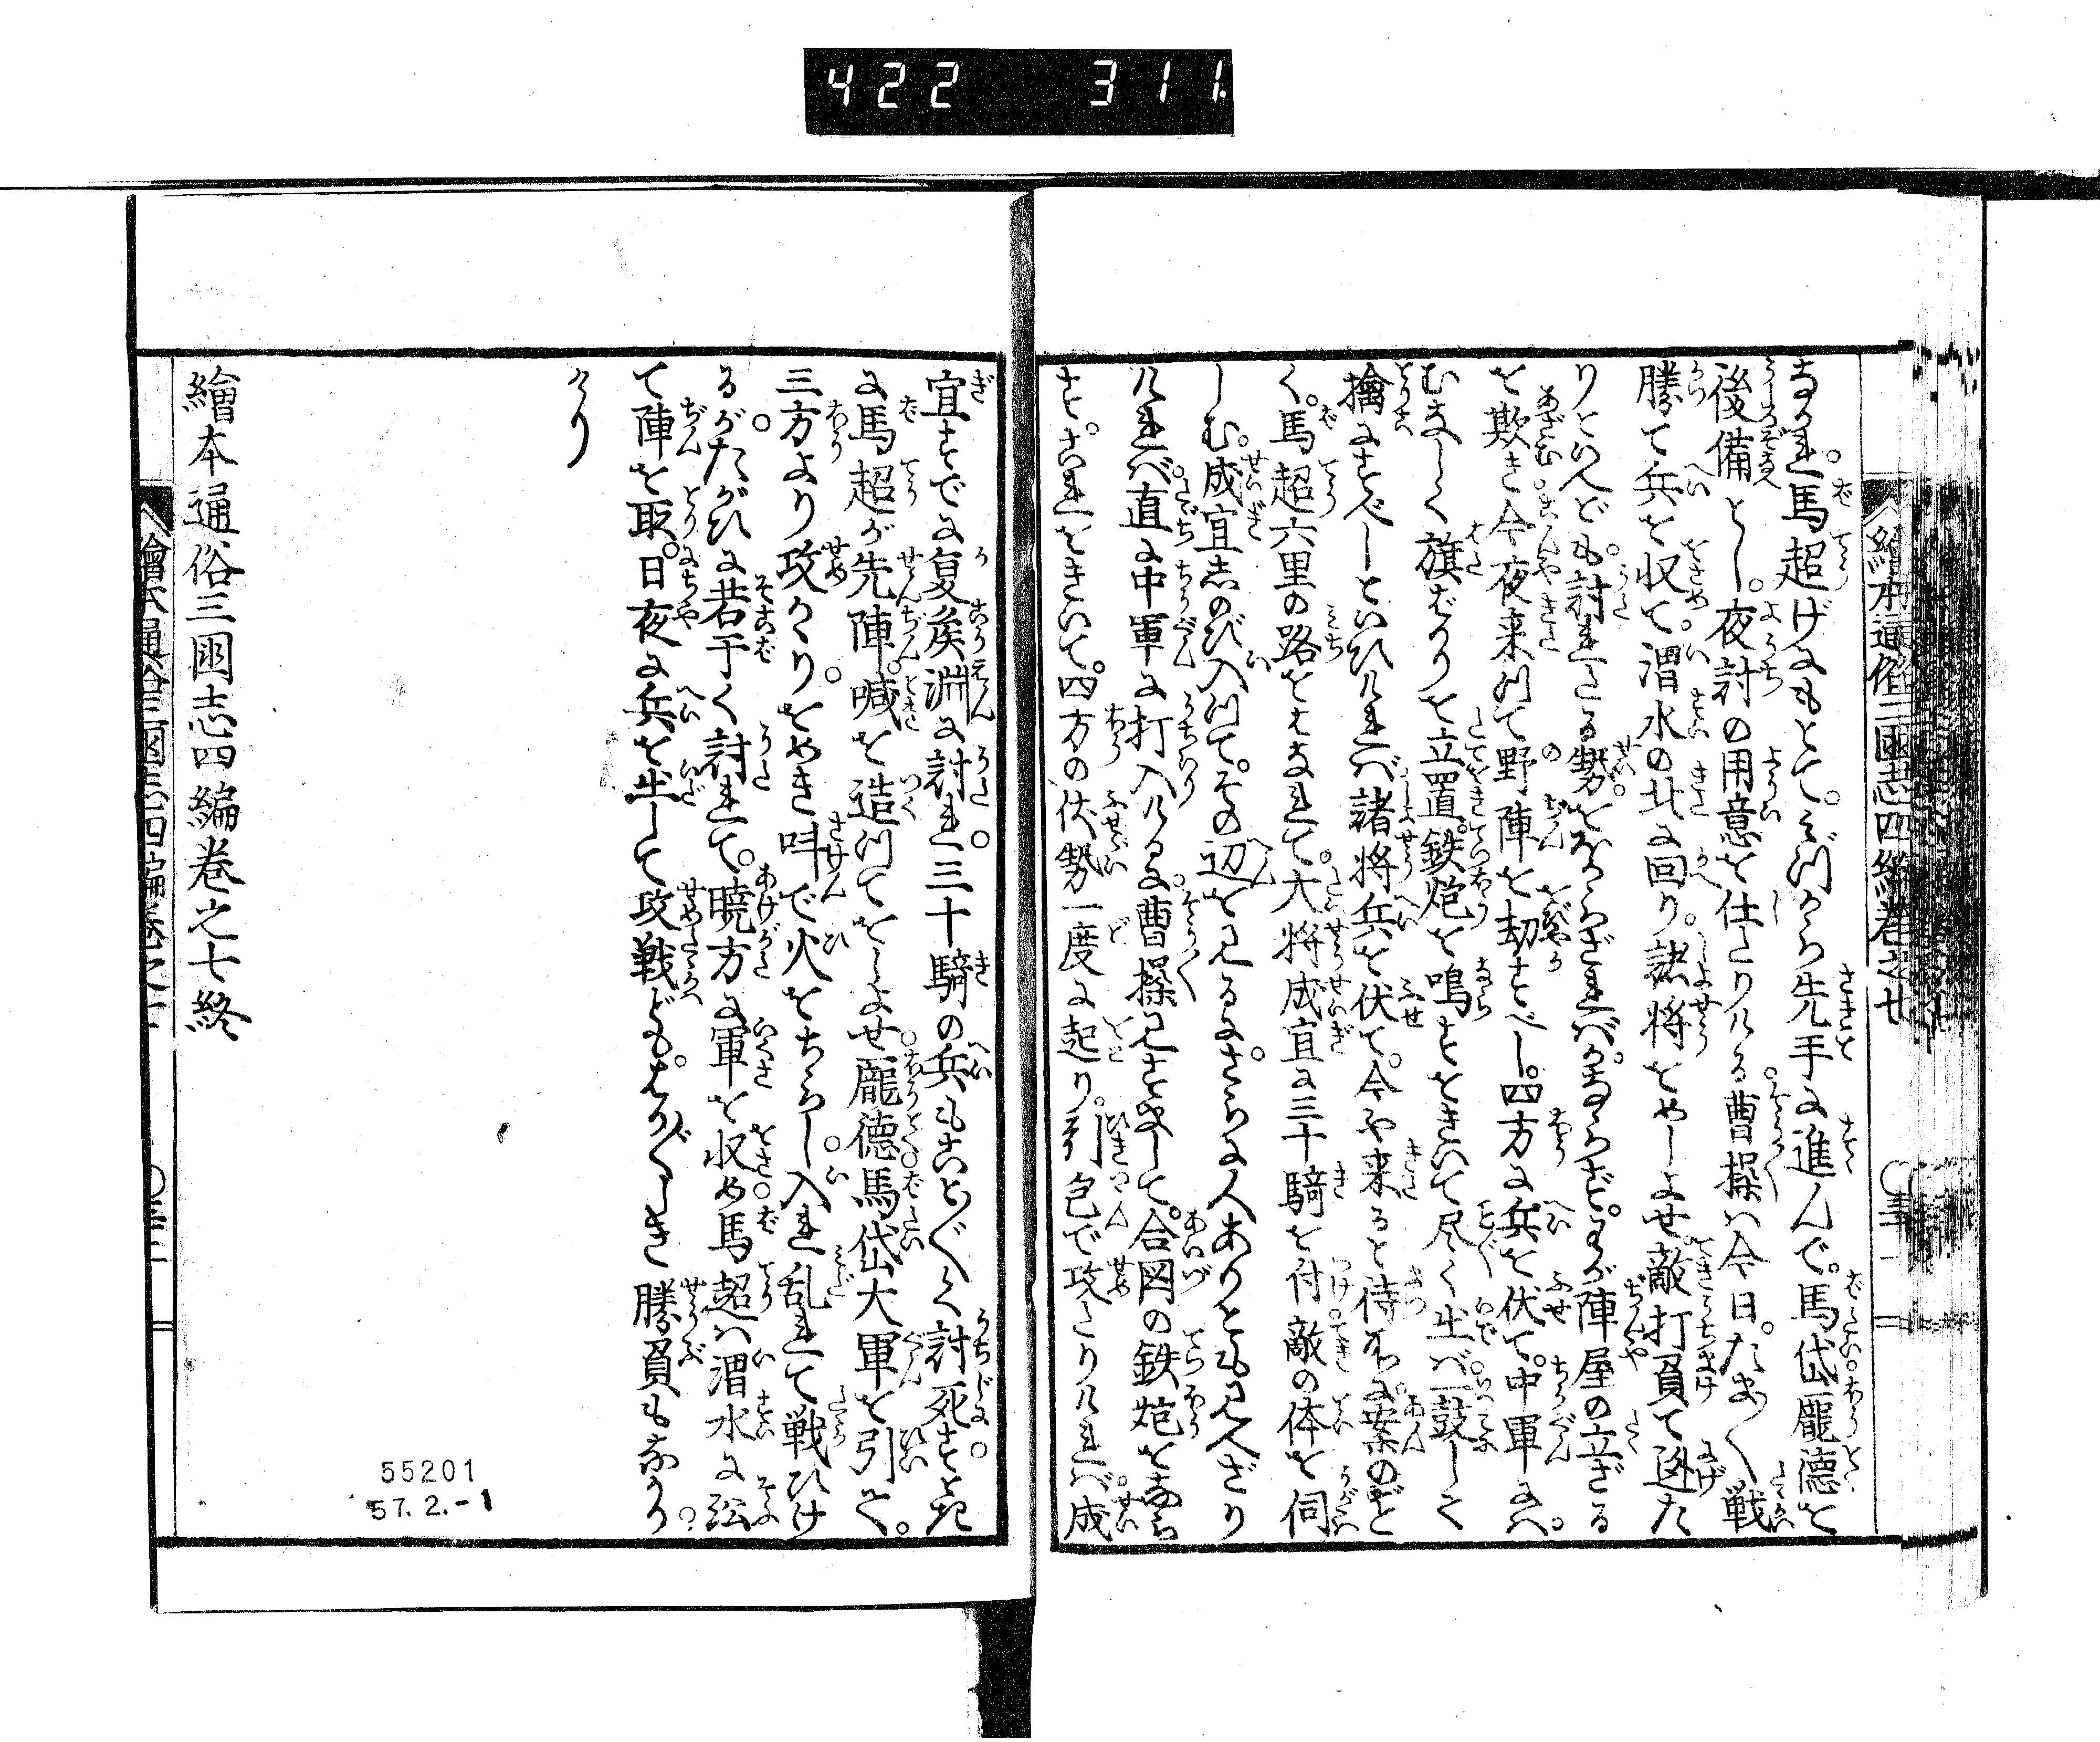 422 311
繪本通俗三國志四編巻之七
なかれ。馬超げにもとて。みづから先手に進んで。馬岱龐徳を
後備とし。夜討の用意を仕たりける。曹操は今日。たまく戦
勝て兵を収て。渭水の北に回り。諸将をめしよせ敵打負て迯た
りといへども。討れたる勢。をほからざれば。かならず。わが陣屋の立ざる
を欺き今夜来つて野陣を劫すべし。四方に兵を伏て。中軍には。
むなしく旗ばかりを立置。鉄炮を鳴すをきいて尽く出ば一鼓して
擒にすべしといひければ諸将兵を伏て。今や来ると待所に。案のご
く。馬超六里の路をはなれて。大将成宜に三十騎を付敵の体を伺
しむ。成宜志のび入つて。その辺を見るに。さらに人ありとも見へざり
ければ。直に中軍に打入ける。曹操見すまして。合図の鉄炮をなら
す。これをきいて。四方の伏勢一度に起り。引包で攻たりければ。成
宜すでに夏侯淵に討れ。三十騎の兵もことぐく討死すときに
に馬超が先陣。喊を造つてをしよせ。龐徳。馬岱大軍を引て。
三方より攻かくり。をめき呌で火をちらし。入れ乱れて戦ひけ
る。がたがひに若干く討れて。暁方に軍を収め。馬超は渭水に沿
て陣を取。日夜に兵を出して攻戦ども。はかぐしき勝負もなかり
けり
繪本通俗三國志四編巻之七終
繪本通俗三國志四編巻之七
55201
57.2.-1